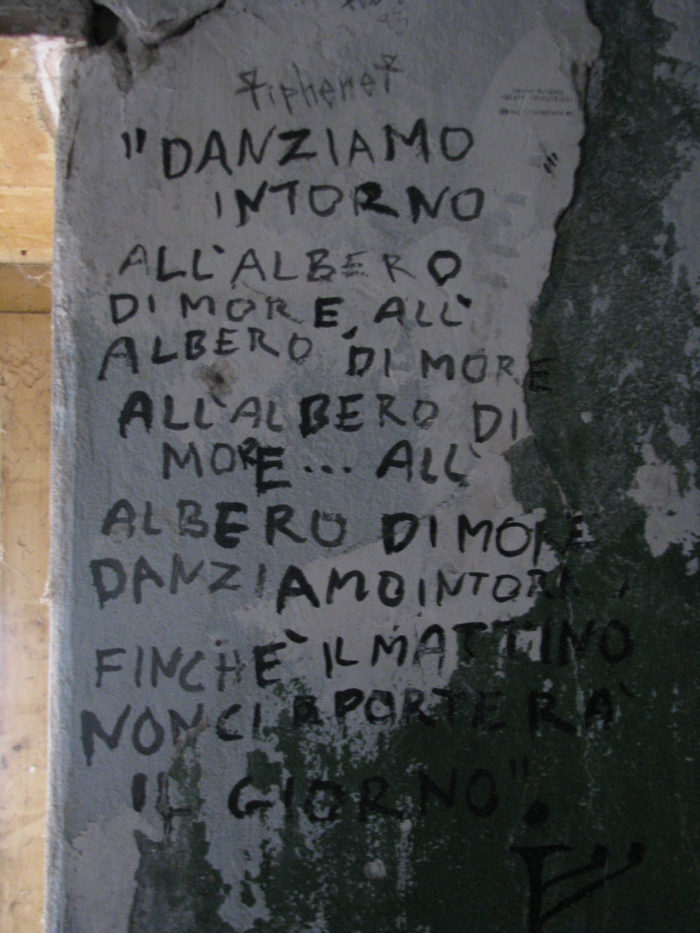 Tiphenet
"DANZIAMO
INTORNO
ALL'ALBERO
DI MORE, ALL'
ALBERO DI MORE
ALL'ALBERO DI
MORE... ALL'
ALBERO DI MORE
DANZIAMO INTOR
FINCHE' IL MATTINO
NON CI PORTERA'
IL GIORNO".